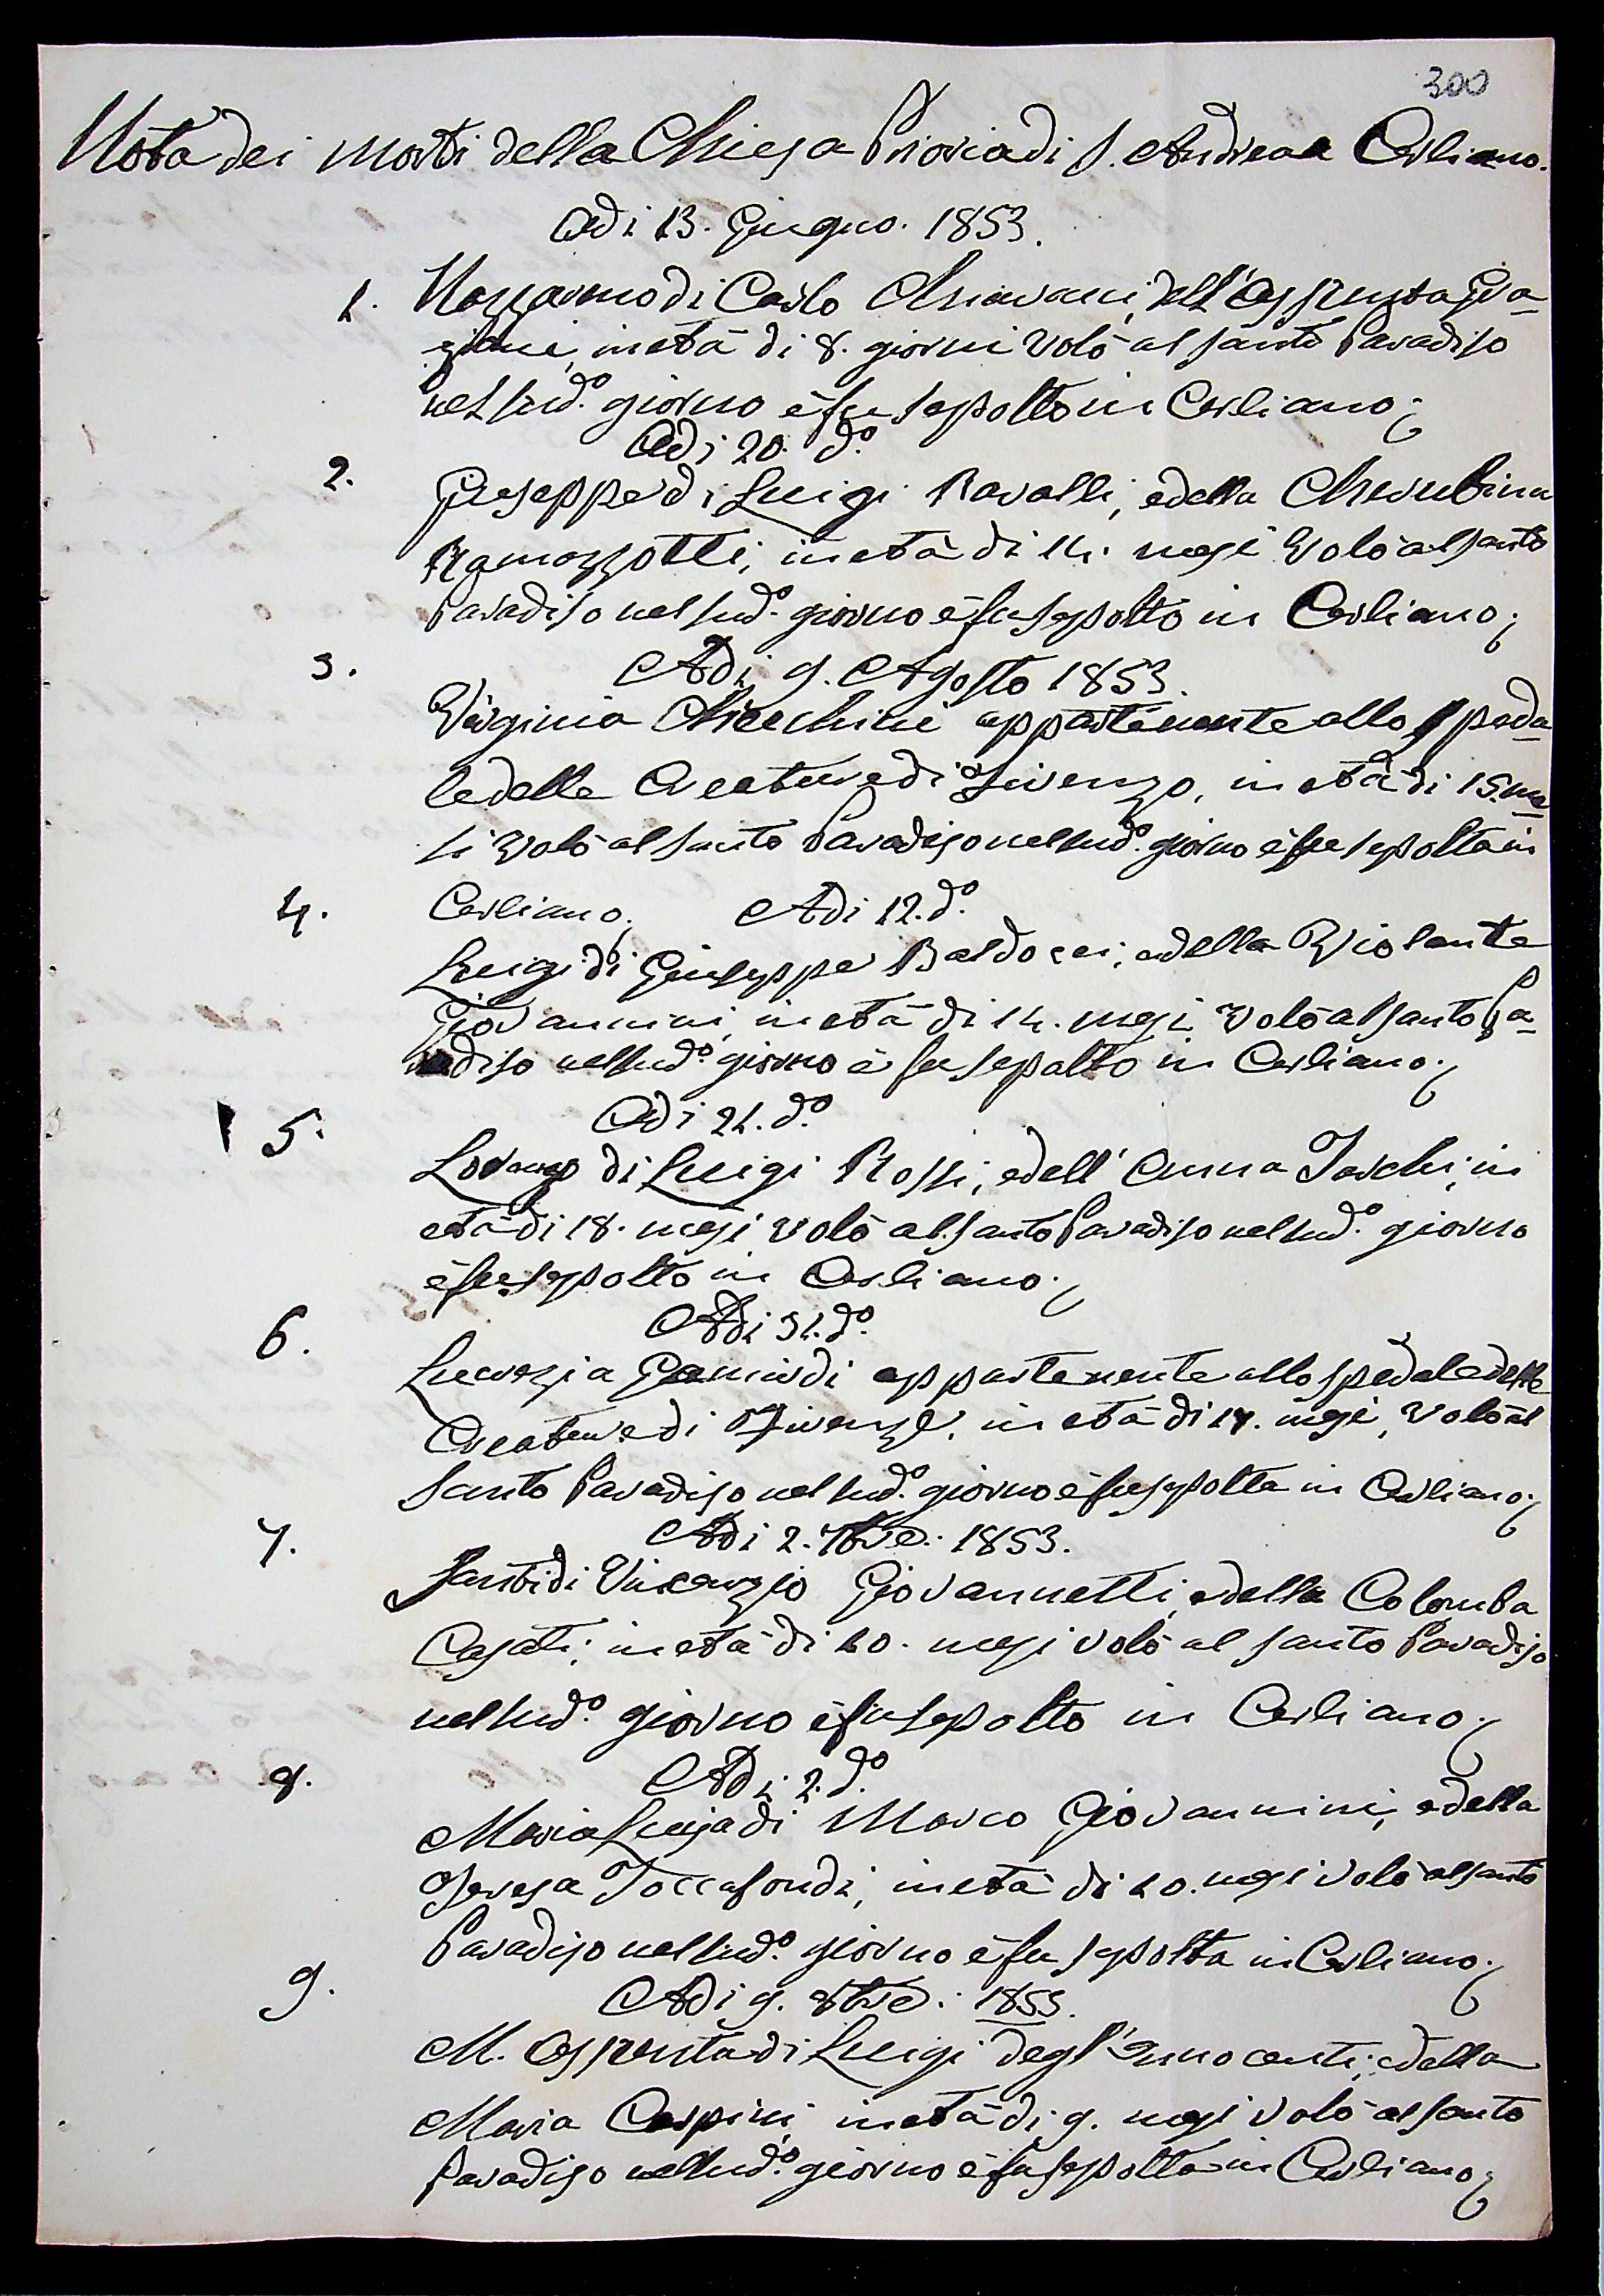 300
Nota dei morti della Chiesa Prioria di S. Andrea a Cerliano.
Adi 13. Giugno. 1853.
1. Nazzareno di Carlo Chiavacci, dell'Assunta Gra=
ziani, in età di 8. giorni volò al santo Paradiso
nel sud.o giorno è fu sepolto in Cerliano;
Adi 20. d.o
2. Giuseppe di Luigi Ravalli, e della Cherubina
Ramazzotti, in età di 14. mesi volò al santo
Paradiso nel sud.o giorno è fu sepolto in Cerliano;
3. Adi 9. Agosto 1853.
Virginia appartenente allo speda=
le delle Creature di Firenze, in età di 15. me=
si volò al santo Paradiso nel sud.o giorno è fu sepolta in
4. Cerliano; Adi 12. d.o
Luigi di Giuseppe Baldocci, e della Violante
Giovannini, in età di 14. mesi volò al santo Pa=
radiso nel sud.o giorno è fu sepolto in Cerliano;
5. Adi 21. d.o
Lorenzo di Luigi Rossi, e dell'Anna Taschi, in
età di 18. mesi volò al santo Paradiso nel sud.o giorno
è fu sepolto in Cerliano;
6. Adi 31. d.o
Lucrezia appartenente allo spedale delle
Creature di Firenze, in età di 17. mesi, volò al
santo Paradiso nel sud.o giorno è fu sepolta in Cerliano;
7. Adi 2. 7bre. 1853.
Santi di Vincenzio Giovannetti, e della Colomba
Casati; in età di 10. mesi volò al santo Paradiso
nel sud.o giorno è fu sepolto in Cerliano;
8. Adi 2. d.o
Maria Luisa di Marco Giovannini, e della
Teresa Toccafondi, in età di 10. mesi volò al santo
Paradiso nel sud.o giorno è fu sepolta in Cerliano;
9. Adi 9. 8bre. 1853.
M. Assunta di Luigi degl'Innocenti, e della
Maria Carpini, in età di 9. mesi volò al santo
Paradiso nel sud.o giorno è fu sepolta in Cerliano;